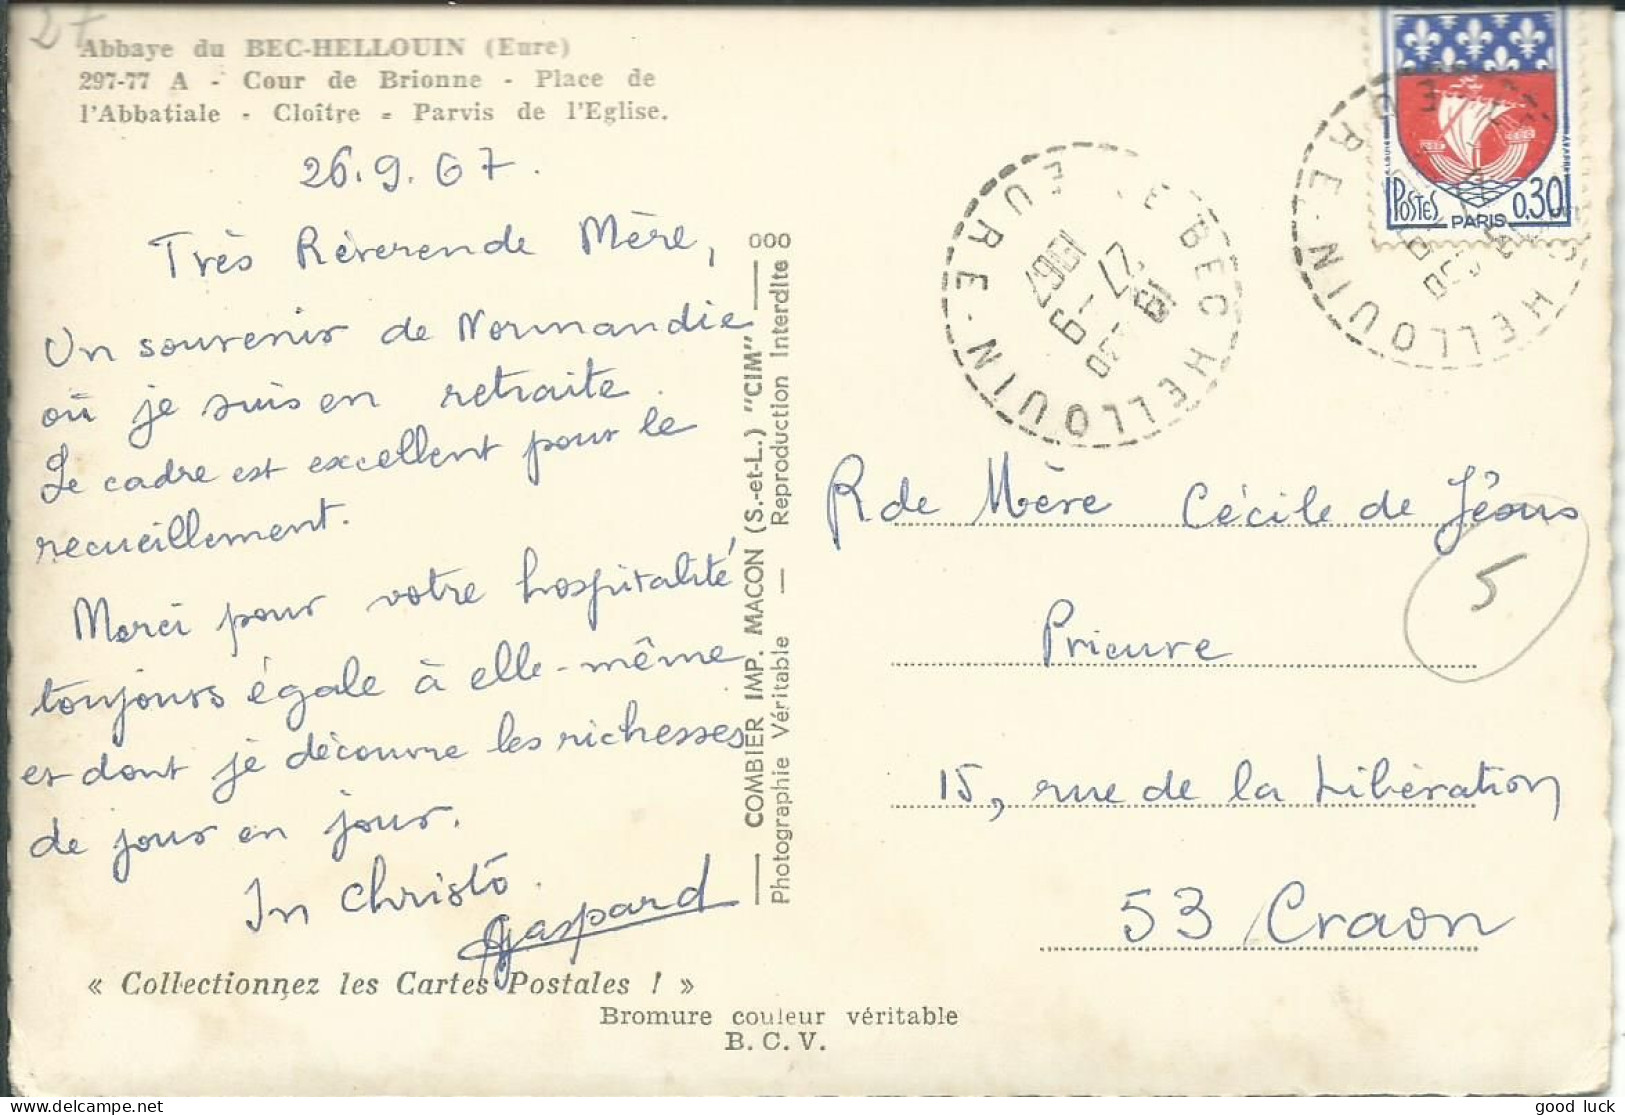 27
Abbaye du BEC-HELLOUIN (Eure)
297-77 A - Cour de Brionne - Place de
l'Abbatiale - Cloître - Parvis de l'Eglise.
26.9.67.
Très Révérende Mère,
Un souvenir de Normandie
où je suis en retraite.
Le cadre est excellent pour le
recueillement.
Merci pour votre hospitalité
toujours égale à elle-même
et dont je découvre les richesses
de jour en jour.
In Christo.
Gaspard
« Collectionnez les Cartes Postales ! »
Bromure couleur véritable
B. C. V.
COMBIER IMP. MACON (S.-et-L.) "CIM" 000
Photographie Véritable — Reproduction Interdite
BEC HELLOUIN · EURE
27 - 9
1967
BEC HELLOUIN · EURE
POSTES PARIS 0,30
Rde Mère Cécile de Jésus
5
Prieure
15, rue de la Libération
53 Craon
good luck